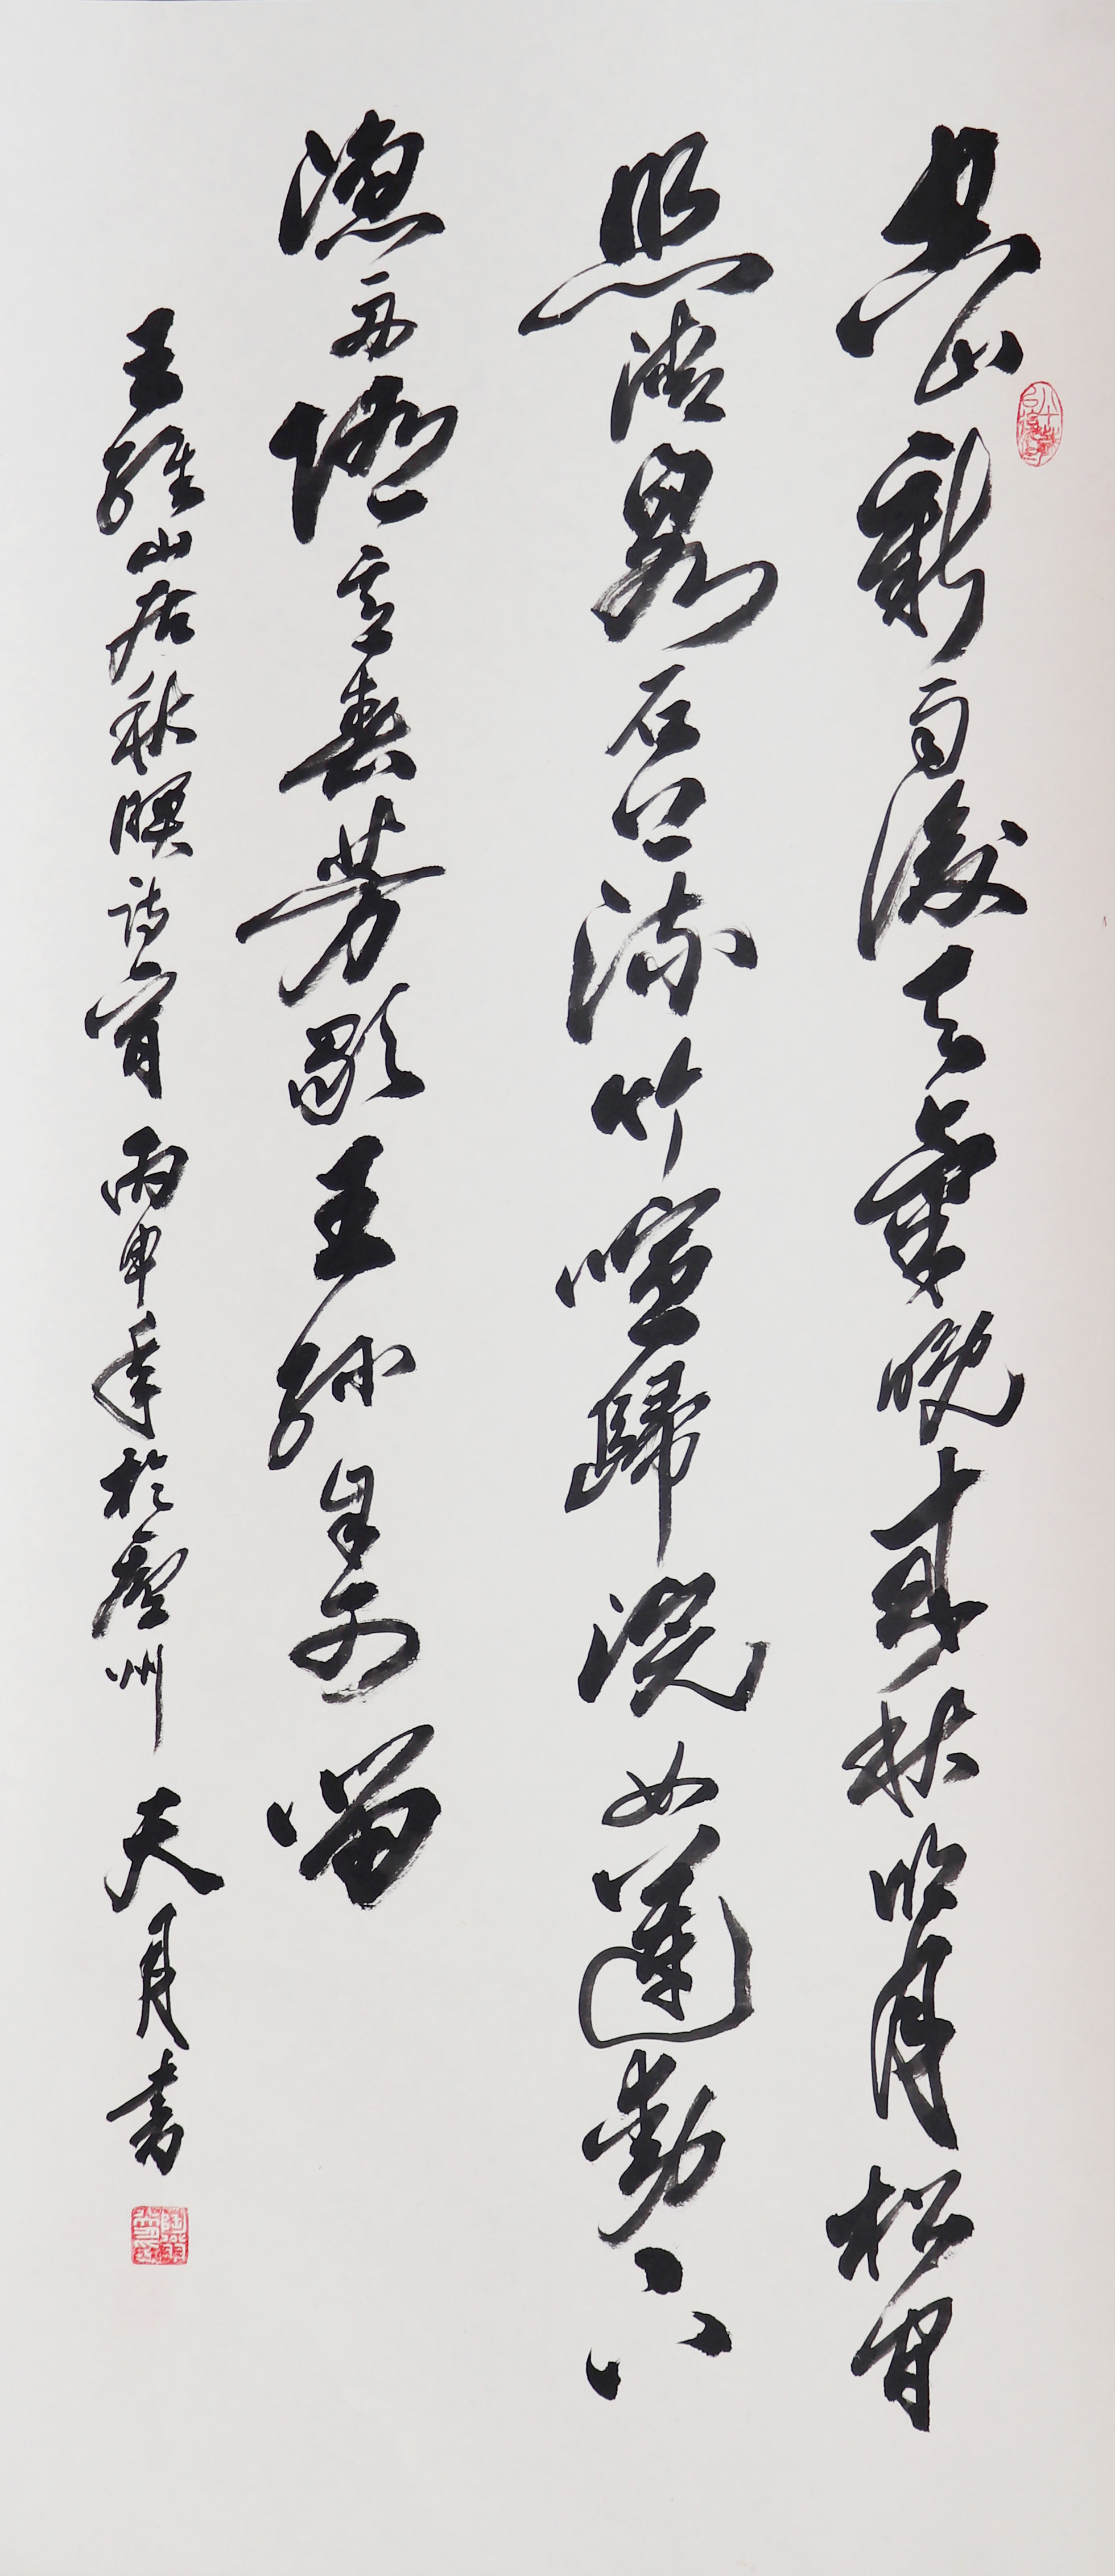 空山新雨後天氣晚來秋明月松間
照清泉石上流竹喧歸浣女蓮動下
漁舟隨意春芳歇王孫自可留
王維山居秋暝詩一首 丙申年於廬州 天月書